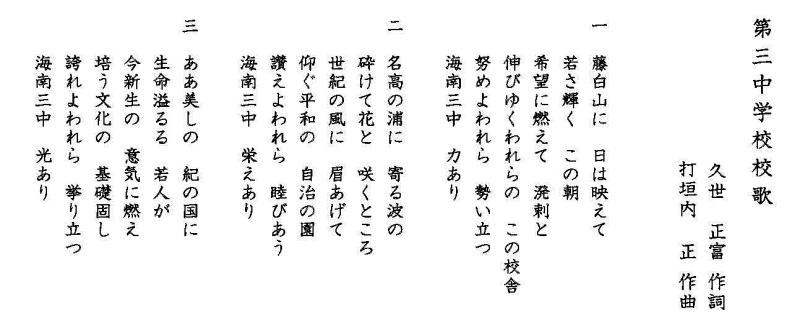 第三中学校校歌
久世 正富 作詞
打垣内 正 作曲
一 藤白山に 日は映えて
若さ輝く この朝
希望に燃えて 溌剌と
伸びゆくわれらの この校舎
努めよわれら 勢い立つ
海南三中 力あり
二 名高の浦に 寄る波の
砕けて花と 咲くところ
世紀の風に 眉あげて
仰ぐ平和の 自治の園
讃えよわれら 睦びあう
海南三中 栄えあり
三 ああ美しの 紀の国に
生命溢るる 若人が
今新生の 意気に燃え
培う文化の 基礎固し
誇れよわれら 挙り立つ
海南三中 光あり